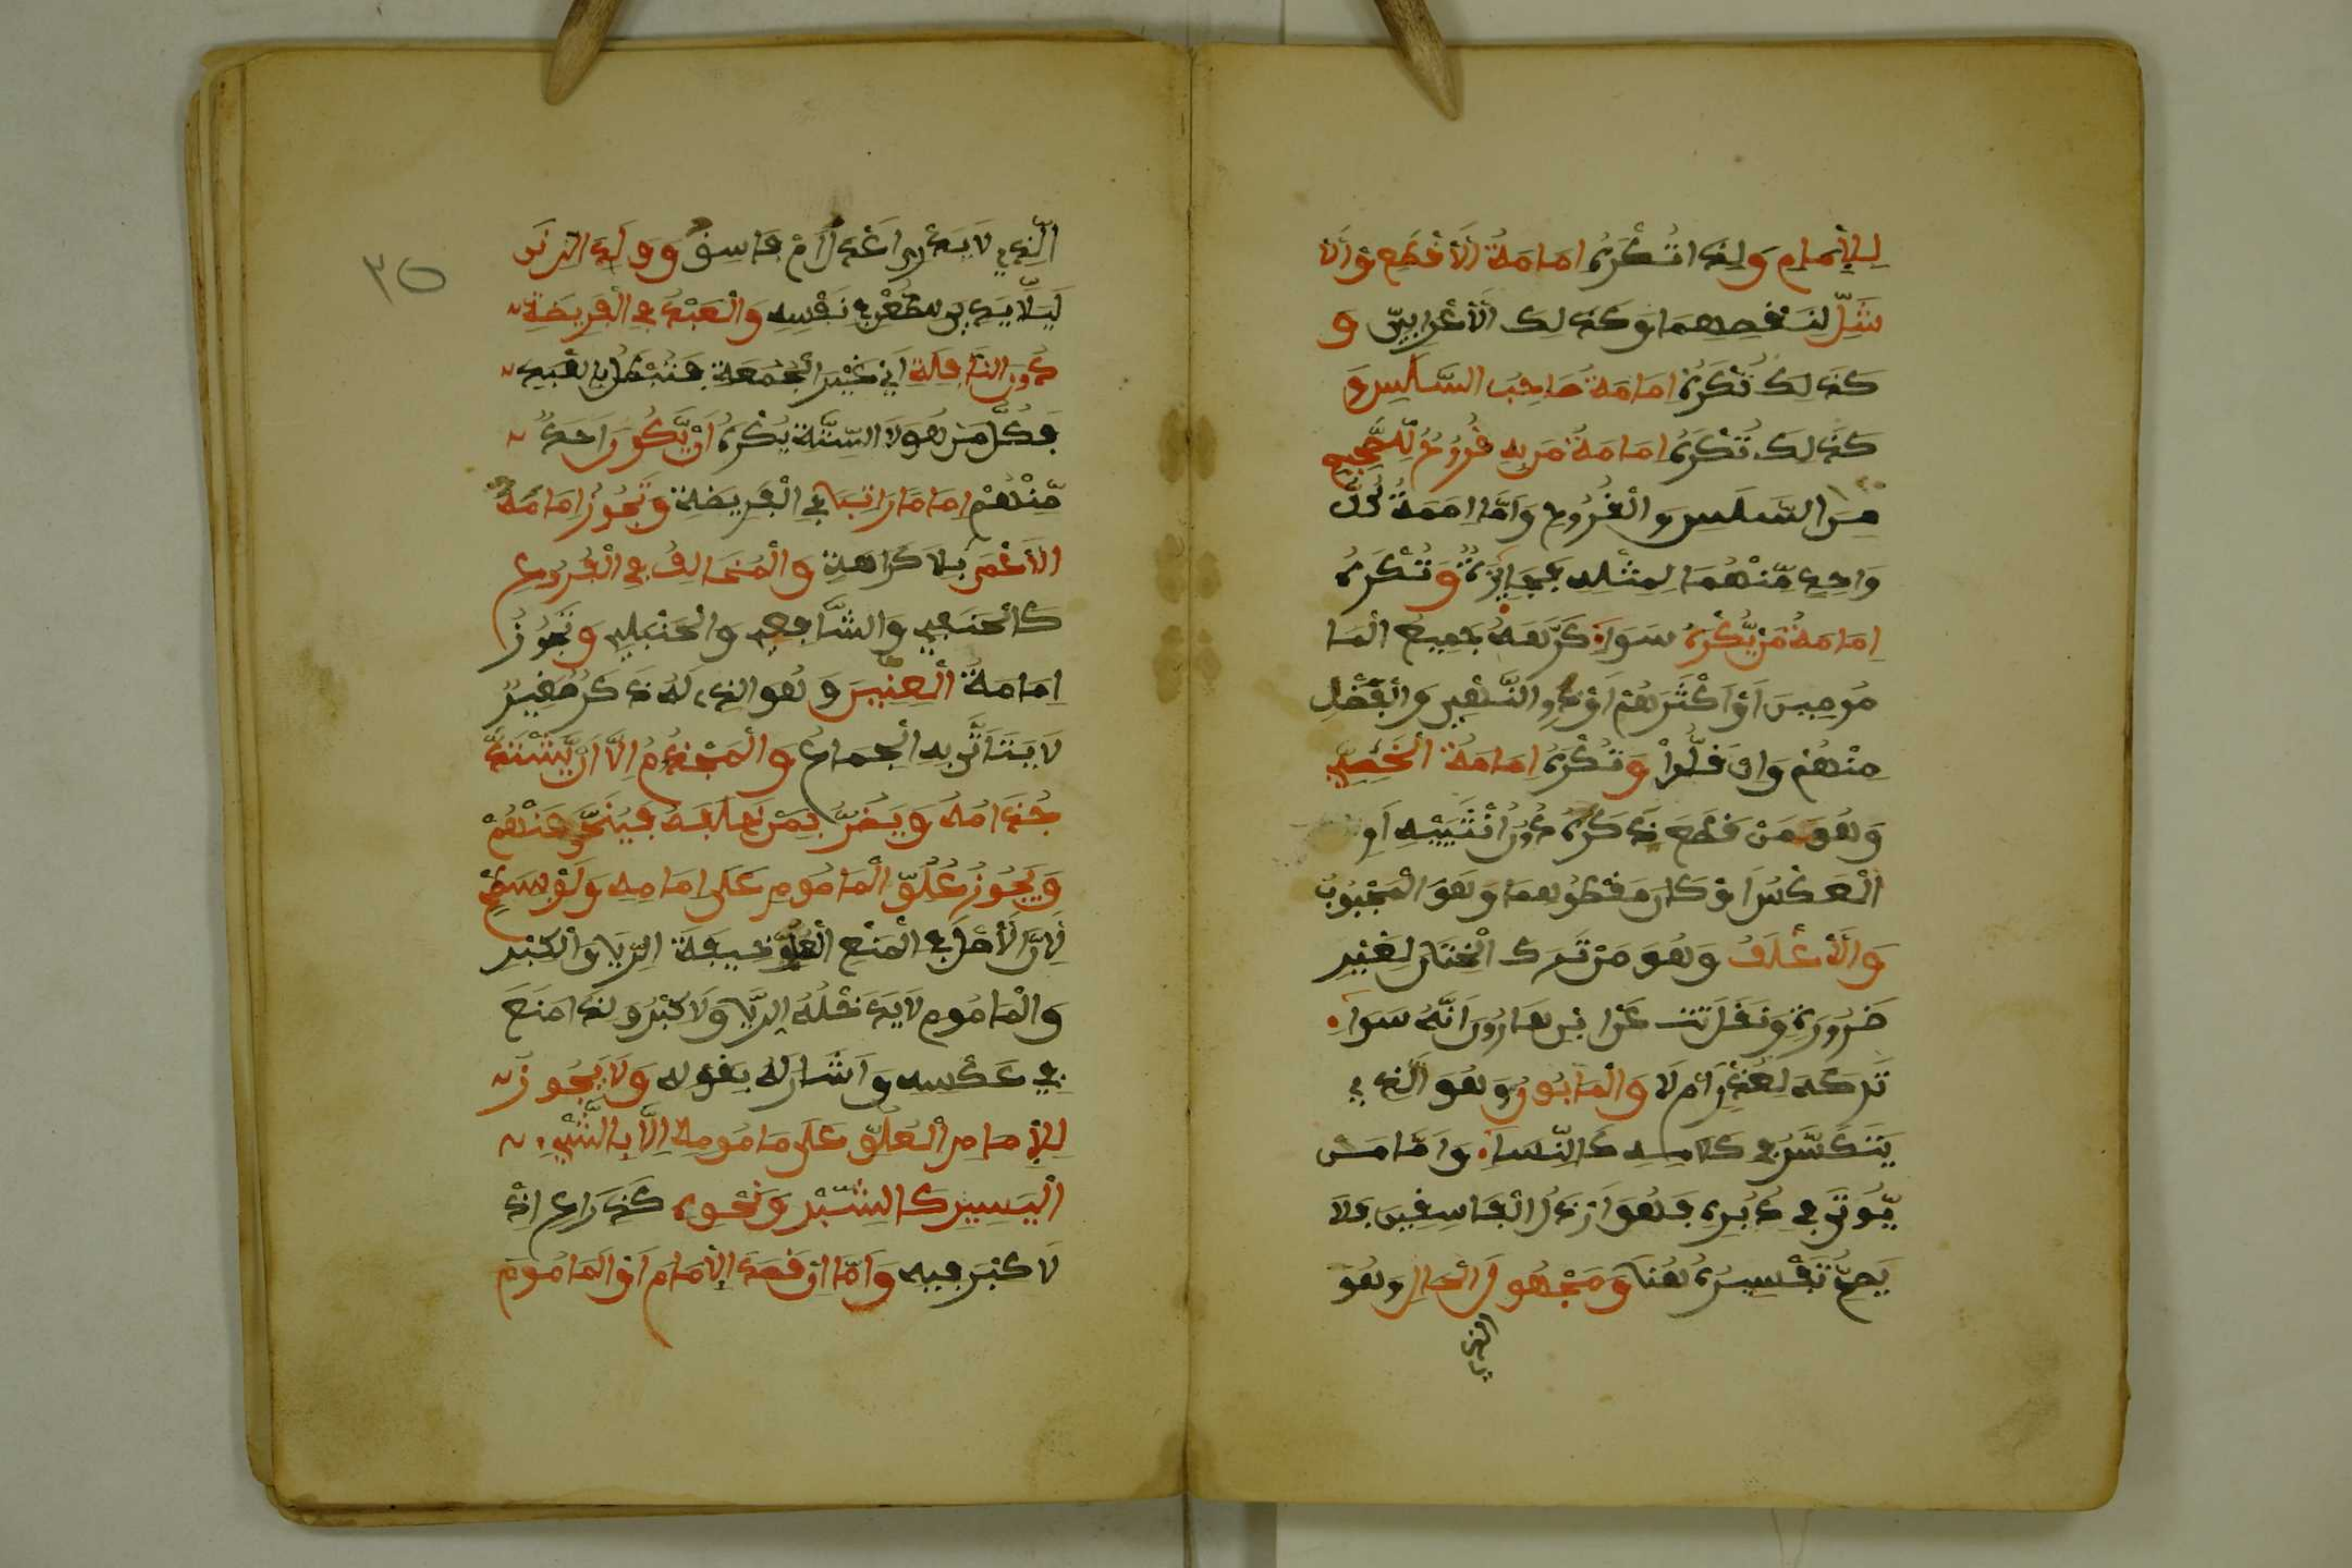 لِلْإِمَامِ وَلِذَا تُكْرَهُ امَامَةُ الَأقْطَعِ وَالَا
شَلِّ لِنَقْصِهِمَا وَكَذَلِكَ الَأعْرَابِيّ وَ
كَذَلِكَ تُكْرَهُ امَامَةُ صَاحِبُ السَّلَسِ وَ
كَذَلِكَ تُكْرَهُ امَامَةُ مَن بِهِ قُرُوحٌ لِلصَّحِيحِ
مِنَ السَّلَسِ وَالْقُرُوحِ وَاَمَّا امَمَةُ كُلِّ
وَاحِدٍ مِّنْهُمَا لِمِثْلِهِ فَجَايِزَةٌ وَتُكْرَهُ
امَامَةُ مَن يُّكْرَهُ سَوَاءٌ كَرَّهَهُ جَمِيعُ الْمَا
مُومِينَ اَوْ اَكْثَرَهُمْ اَوْ ذِو النَّهْيِ وَالْفَضْلِ
مِنْهُمْ وَان قَلُّوا وَتُكْرَهُ امَامَةُ الْخَصِيِّ
وَهُوَ مَنْ قَطَعَ ذَكَرُهُ دُونَ انْثَيَيْهِ اَوِ
الْعَكْسُ اَوْ كَانَ مَقْطُوهِمَا وَهُوَ الْمَجْبُوبُ
وَالَأغْلَفُ وَهُوَ مَنْ تَرَكَ الْخِتَانَ لِغَيْرِ
ضَرُورَةٍ وَنَقَلَ تت عَنِ ابْنِ هَارُونَ اَنَّهُ سَوَاء
تَرَكَهُ لِعُذْرٍ اَمْ لَا وَالْمَابُونُ وَهُوَ الَّذِي
يَتَكَسَّرُ فِي كَلَامِهِ كَالنِّسَاءِ وَاَمَّا مَنْ
يُّوتَى فِي دُبُرِهِ فَهُوَ اَرْذَلُ الْفَاسِقِينَ فَلَا
يَصِحُّ تَفْسِيرُهُ هُنَا وَمَجْهُولُ الْحَالِ وَهُوَ
الذي
٣٥
الَّذِي لَا يَدْرِي اَعَدْلٌ اَمْ فَاسِقٌ وَوَلَدُ الزِنَى
لَيلَّا يُوذي بِالطَّعْنِ فِي نَفْسِهِ وَالْعَبْدُ فِي الْفَرِيضَةِ
دُونَ النَّافِلَةِ اَيْ غَيْرَ الْجُمُعَةِ فَتَبْطُلُ بِالْعَبْدِ
فَكُلٌّ مِنْ هَؤلَا السِّتَّةِ يُكْرَهُ اَنْ يَّكُونَ وَاحِدٌ
مِّنْهُمْ امَامًا رَاتِبًا فِي الْفَرِيضَةِ وَتَجُوزُ امَامَةُ
الَأعْمَى بِلَا كَرَاهَةٍ وَالْمُخَالِفُ فِي الْفُرُوعِ
كَالْحَنَفِي وَالشَّافِعِي وَالْحَنْبَلِي وَتَجُوزُ
امَامَةُ الْعِنِّينَ وَهُوَ الذِي لَهُ ذَكَرٌ صَغِيرٌ
لَا يَتَاَتَّى بِهِ الْجِمَاعُ وَالْمَجْذُومُ اِلَّا اَنْ يَّشْتَدَّ
جُذَامُهُ وَيَضُرُّ بِمَنْ خَلْفَهُ فَيُنَحَّى عَنْهُمْ
وَيَجُوزُ عُلُوُّ الْمَامُومِ عَلَى امَامِهِ وَلَوْ بِسَطْحٍ
لِاَنَّ الَأصْلَ فِي الْمَنْعِ الْعُلُوِّ خِيفَةَ الرِّيَا وَالْكِبْرِ
وَالْمَامُومِ لَا يَدْخُلُهُ الرِّيَا وَلَا كِبْرُ وَلِذَا مَنَعَ
فِي عَكْسِهِ وَاَشَارَ لَهُ بِقَوْلِهِ وَلَا يَجُوزُ
لِلْإِمَامِ الْعُلُوِّ عَلَى مَامُومِهِ اِلَّا بِالشَّيْءِ
الْيَسِيرِ كَالشِّبْرِ وَنَحْوِهِ كَذِرَاعٍ اِذْ
لَا كِبْرَ فِيهِ وَاَمَّا اِنْ قَصَدَ الْإِمَامُ اَوِ الْمَامُومُ